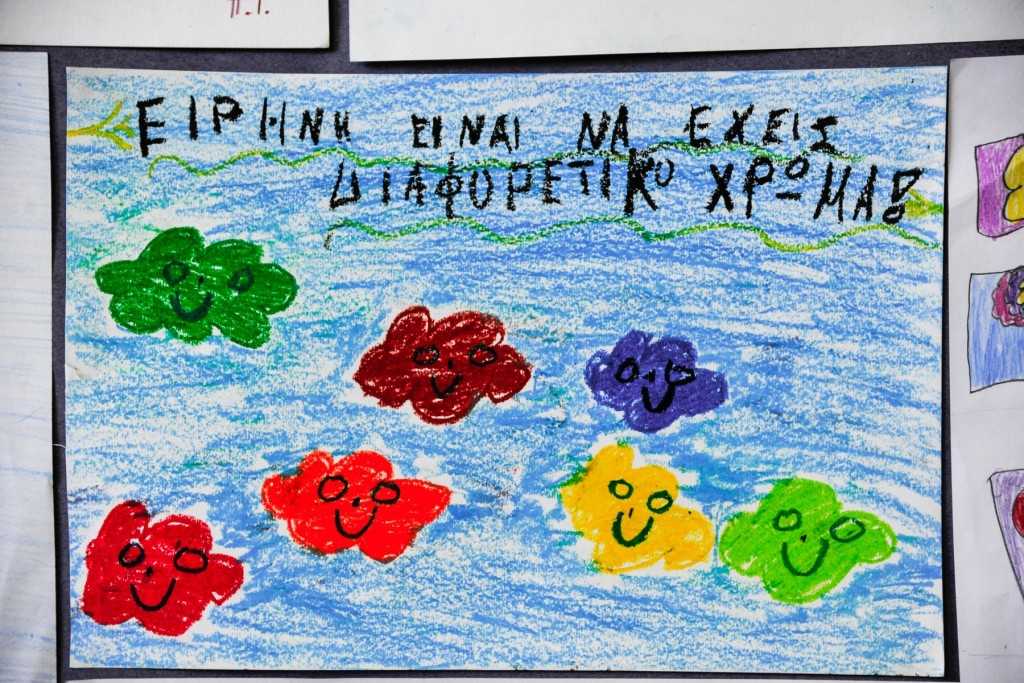 Π.Τ.
ΕΙΡΗΝΗ ΕΙΝΑΙ ΝΑ ΕΧΕΙΣ
ΔΙΑΦΟΡΕΤΙΚΟ ΧΡΩΜΑ!